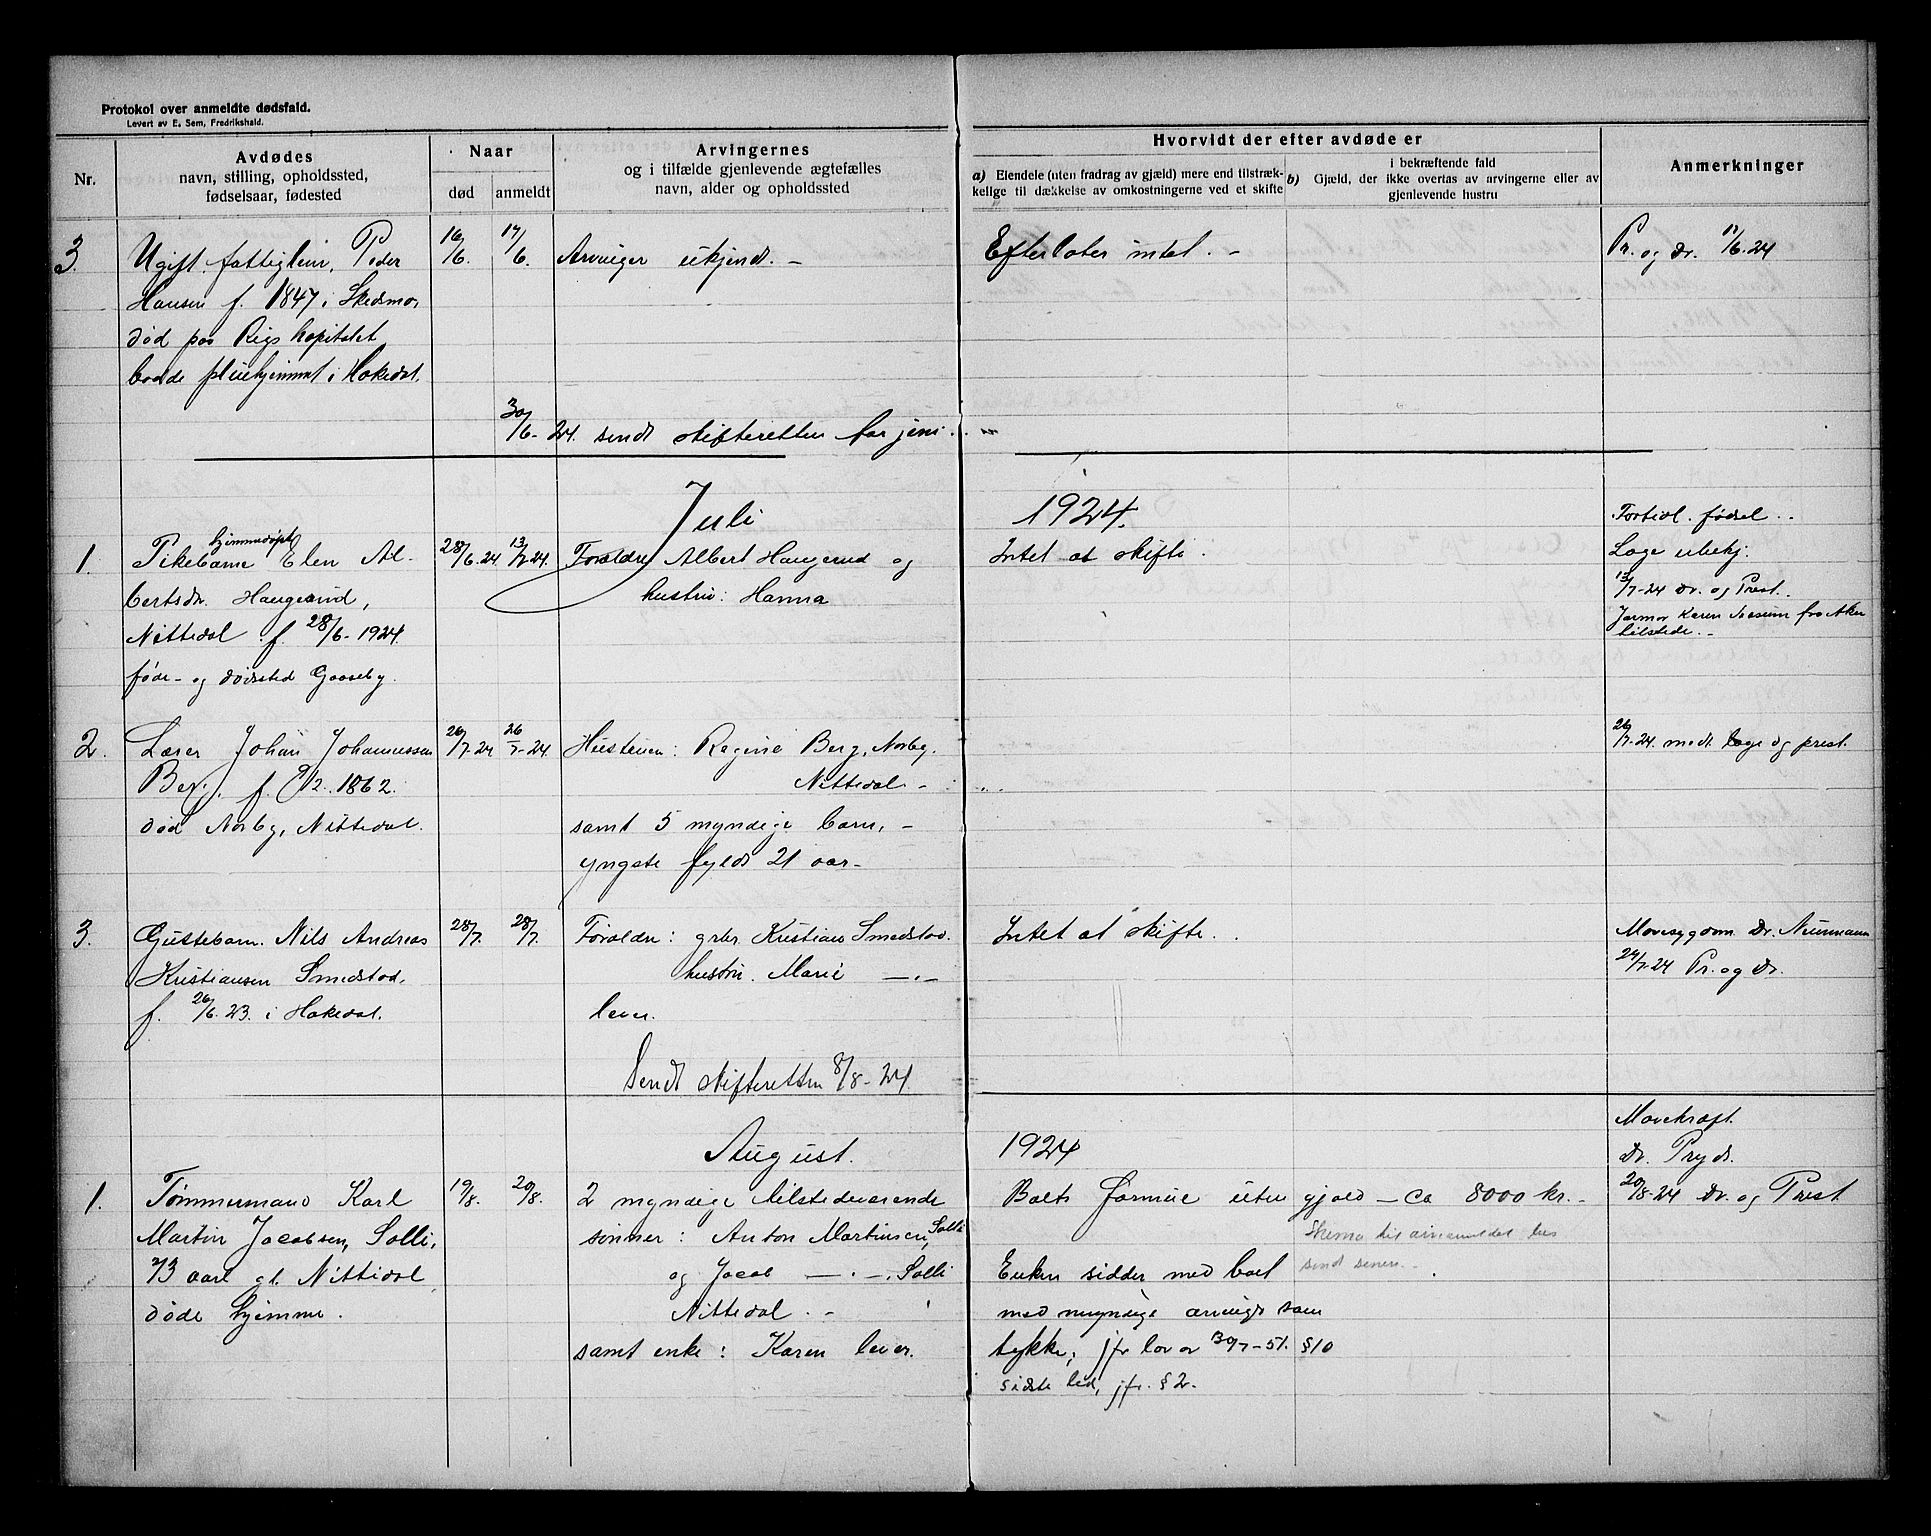 Protokol over anmeldte dødsfald.
Levert av E. Sem, Fredrikshald.
Nr.
Avdødes
navn, stilling, opholdssted,
fødselsaar, fødested
Naar
død
anmeldt
Arvingernes
og i tilfælde gjenlevende ægtefælles
navn, alder og opholdssted
Hvorvidt der efter avdøde er
a) Eiendele (uten fradrag av gjæld) mere end tilstræk-
kelige til dækkelse av omkostningerne ved et skifte
i bekræftende fald
b) Gjæld, der ikke overtas av arvingerne eller av
gjenlevende hustru
Anmerkninger
3. Ugift. fattiglem, Peder 16/6. 17/6. Arvinger ukjendt. – Efterlater intet. – Pr. og dr. 17/6.24
Hansen f. 1847 i Skedsmo,
død paa Rigshopitalet
boede pleiehjemmet i Hakedal.
30/6-24. sendt skifteretten for juni.
Juli 1924.
Fortidl. fødsel.
1. Pikebarne hjemmedøpt Elen Al- 28/6.24 13/7-24. Foraldre Albert Haugerud og Intet at skifte. Læge ubekj.
bertsdr. Haugerud, hustru: Hanna 13/7-24 Dr. og Prest.
Nittedal. f. 28/6-1924. Jormor Karen Aasum fra Aker
tilstede. –
føde- og dødssted Gaaseby.
2. Lærer Johan Johannessen 26/7.24 26/7-24. Hustruen: Regine Berg, Norby. 26/7-24. medt. læge og prest.
Berg. f. 9/2.1862. Nittedal –
død Norby, Nittedal. samt 5 myndige barn, –
yngste fyldt 21 aar –
3. Gustebarn. Nils Andreas 28/7. 28/7. Foraldre: grbr. Kristian Smedstad. Intet at skifte. Mavesygdom Dr. Neumann
Kristiansen Smedstad. hustru. Marie –.– 24/7-24 Pr. og Dr.
f. 26/6.23. i Hakedal. lever.
Sendt skifteretten 8/8-24
August. 1924
Mavekræft.
Dr. Pryds.
1. Tømmermand Karl 19/8. 20/8. 2 myndige tilstedeværende Boets formue uten gjæld – ca 8000 kr. – 20/8-24 Dr. og Prest
Martin Jacobsen, Solli, sønner: Anton Martinsen, Solli Skema til
73 aarl gl. Nittedal, og Jacob –.–, Solli Enken sidder med boet sendt senere. –
døde hjemme. Nittedal. – med myndige arvings sam
samt enke: Karen lever. tykke, jfr lov av 30/7-51. §10
sidste led, jfr. §2.